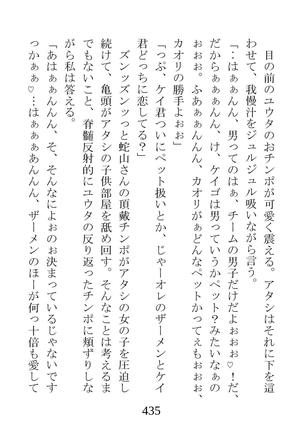 目の前のユウタのおチンポが可愛く震える。アタシはそれに下を這
わせて、我慢汁をジュルジュル吸いながら言う。
「‥はぁぁんん、男ってのはぁ、チームの男子だけだよぉぉぉ♡！だ、
だからぁぁぁんん、け、ケイゴは男っていうかペット？みたいなぁの
ぉぉぉ。ふあぁぁんんん、カオリがぁどんなペットかってぇもぉぉぉ、
カオリの勝手よぉぉ」
「っぷ、ケイ君ついにペット扱いとか、じゃーオレのザーメンとケイ
君どっちに恋してる？」
　ズンッズンッっと蛇山さんの頂戴チンポがアタシの女の子を圧迫し
続けて、亀頭がアタシの子供部屋を舐め回す。そんなことは考えるま
でもないこと、脊髄反射的にユウタの反り返ったチンポに頬ずりしな
がら私は答える。
「あはぁぁんんん、そ、そんなによぉのお決まっているじゃないです
っかぁぁ♡…はぁぁぁあんんん、ザーメンのほーが何っ十倍も愛して
435